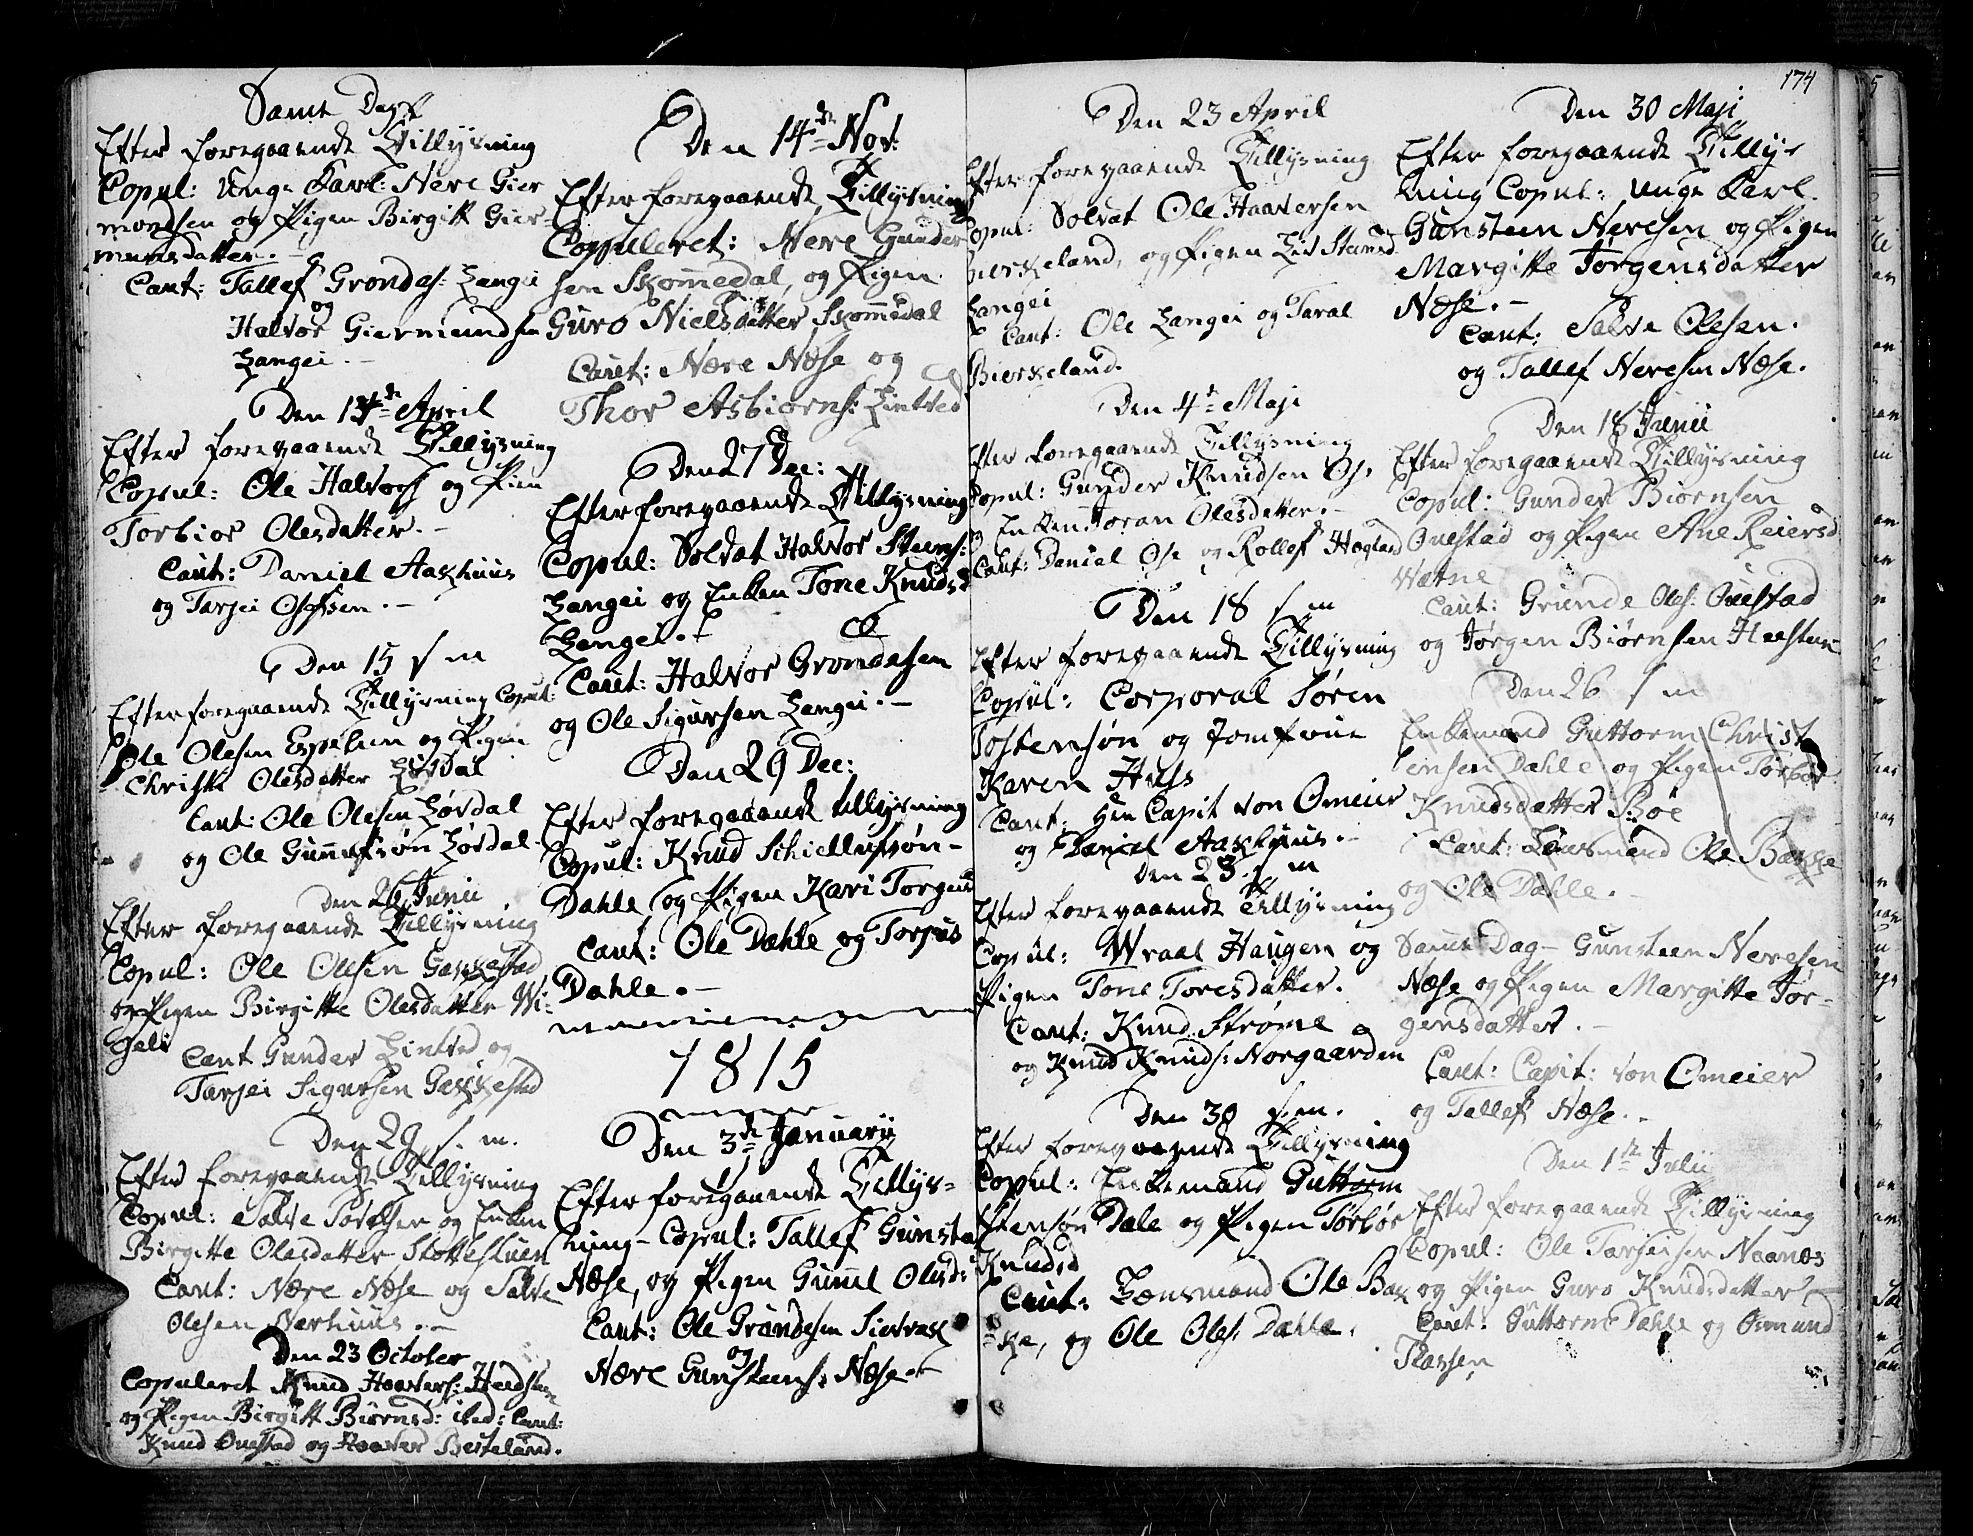 Samt Dags
Efter foregaaende Tillysning
Copul: Unge Karl: Nere Gier
mondsen og Pigen Birgitt Gier
munsdatter. -
Caut: Tallef Grondes: Langei
og
Halvor Giermundsen
Langei. -
Den 13de April
Efter foregaaende Tillysning
Copul: Ole Halvors: og Pien
Torbior Olesdatter. -
Caut: Daniel Aakhuus
og Tarjei Osufsen. -
Den 15 s m
Efter foregaaende Tillysning Copul:
Ole Olesen Espelien og Pigen
Christi Olesdatter Løvdal
Caut: Ole Olesen Løvdal
og Ole Gunnufsøn Løvdal
Den 26 Junii
Efter foregaaende Tillysning
Copul: Ole Olesen Gakkestad
og Pigen Birgitte Olesdatter Wi-
geli
Caut Gunder Lintved og
Tarjei Sigursen Gakkestad
Den 29 s. m.
Efter foregaaende Tillysning
Copul: Salve og Enken
Birgitte Olesdatter Støttestuen
Caut: Nære Næse og Salve
Olesen Nerhuus. -
Den 23 October
Copuleret Knud Haavers: Heidsteen
og Pigen Birgitt Biørnsd: ibed: Caut:
Knud Ouestad og Haaver Besteland.
Den 14de Nov:
Efter foregaaende Tillysning
Copuleret: Nere Gunder
sen Skommedal, og Pigen
Guro Nielsdatter Skommedal
Caut: Nære Næse og
Thor Asbiørns: Lintved
Den 27 Dec:
Efter foregaaende Tillysning
Copul: Soldat Halvor Steens:
Langei og Enken Tone Knudsd
Langei. -
Caut: Halvor Grondesen
og Ole Sigursen Langei. -
Den 29 Dec:
Efter foregaaende tillysning
Copul: Knud Schiellufsøn -
Dahle og Pigen Kari Torgeus
Caut: Ole Dahle og Torjus
Dahle. -
1815
Den 3de January
Efter foregaaende Tillys-
ning - Copul: Tallef Gunste
Næse, og Pigen Gunnil Olesd:
Caut: Ole Grundesen Sietvak
og
Nære Gunsteens: Næse. -
174
Den 23 April
Efter foregaaende Tillysning
Copul: Soldat Ole Haaversen
Bierkeland, og Pigen Liv Steensd
Langei
Caut: Ole Langei og Taral
Bierkeland.
Den 4de Maji
Efter foregaaende Tillysning
Copul: Gunder Knudsen Ose
og Enken Joran Olesdatter. -
Caut: Daniel Ose og Rollef Hogland
Den 18 s m
Efter foregaaende Tillysning
Copul: Corporal Søren
Tostensøn og Jomfrue
Karen Huss
Caut: Hrr Capit von Omeier
og Daniel Aakhuus. -
Den 23 s m
Efter foregaaende Tillysning
Copul: Wraal Haugen og
Pigen Tone Toresdatter.
Caut: Knud Strøme
og Knud Knuds: Norgaarden
Den 30 s m.
Efter foregaaende Tillysning
Copul: Enkemand Guttorm
Dale og Pigen Torbor
Knudsd
Caut: Lænsmand Ole Bak
ke, og Ole Oles: Dahle.
Den 30 Maji
Efter foregaaende Tillys
ning Copul: Unge Karl.
Gunsteen Neresen og Pigen
Margitte Jørgensdatter
Næse. -
Caut: Salve Olesen.
og Tallef Neresen Næse.
Den 18 Junii
Efter foregaaende Tillysning
Copul: Gunder Biørnsen
Ouestad og Pigen Ane Reiersd
Watne
Caut: Grunde Oles: Ouestad
og Jørgen Biørnsen
Den 26 s m
Enkemand Guttorm Christ
ensen Dahle og Pigen Torbor
Knudsdatter Bøe
Caut: Lænsmand Ole Bakke
og Ole Dahle. -
Samt Dag - Gunsteen Neresen
Næse og Pigen Margitte Jør-
gensdatter. -
Caut: Capit: von Omeier
og Tallef Næse. -
Den 1ste Julii
Efter foregaaende Tillysning
Copul: Ole Tarjeisen Naanes
og Pigen Guro Knudsdatter
Caut: Guttorm Dahle og Osmund